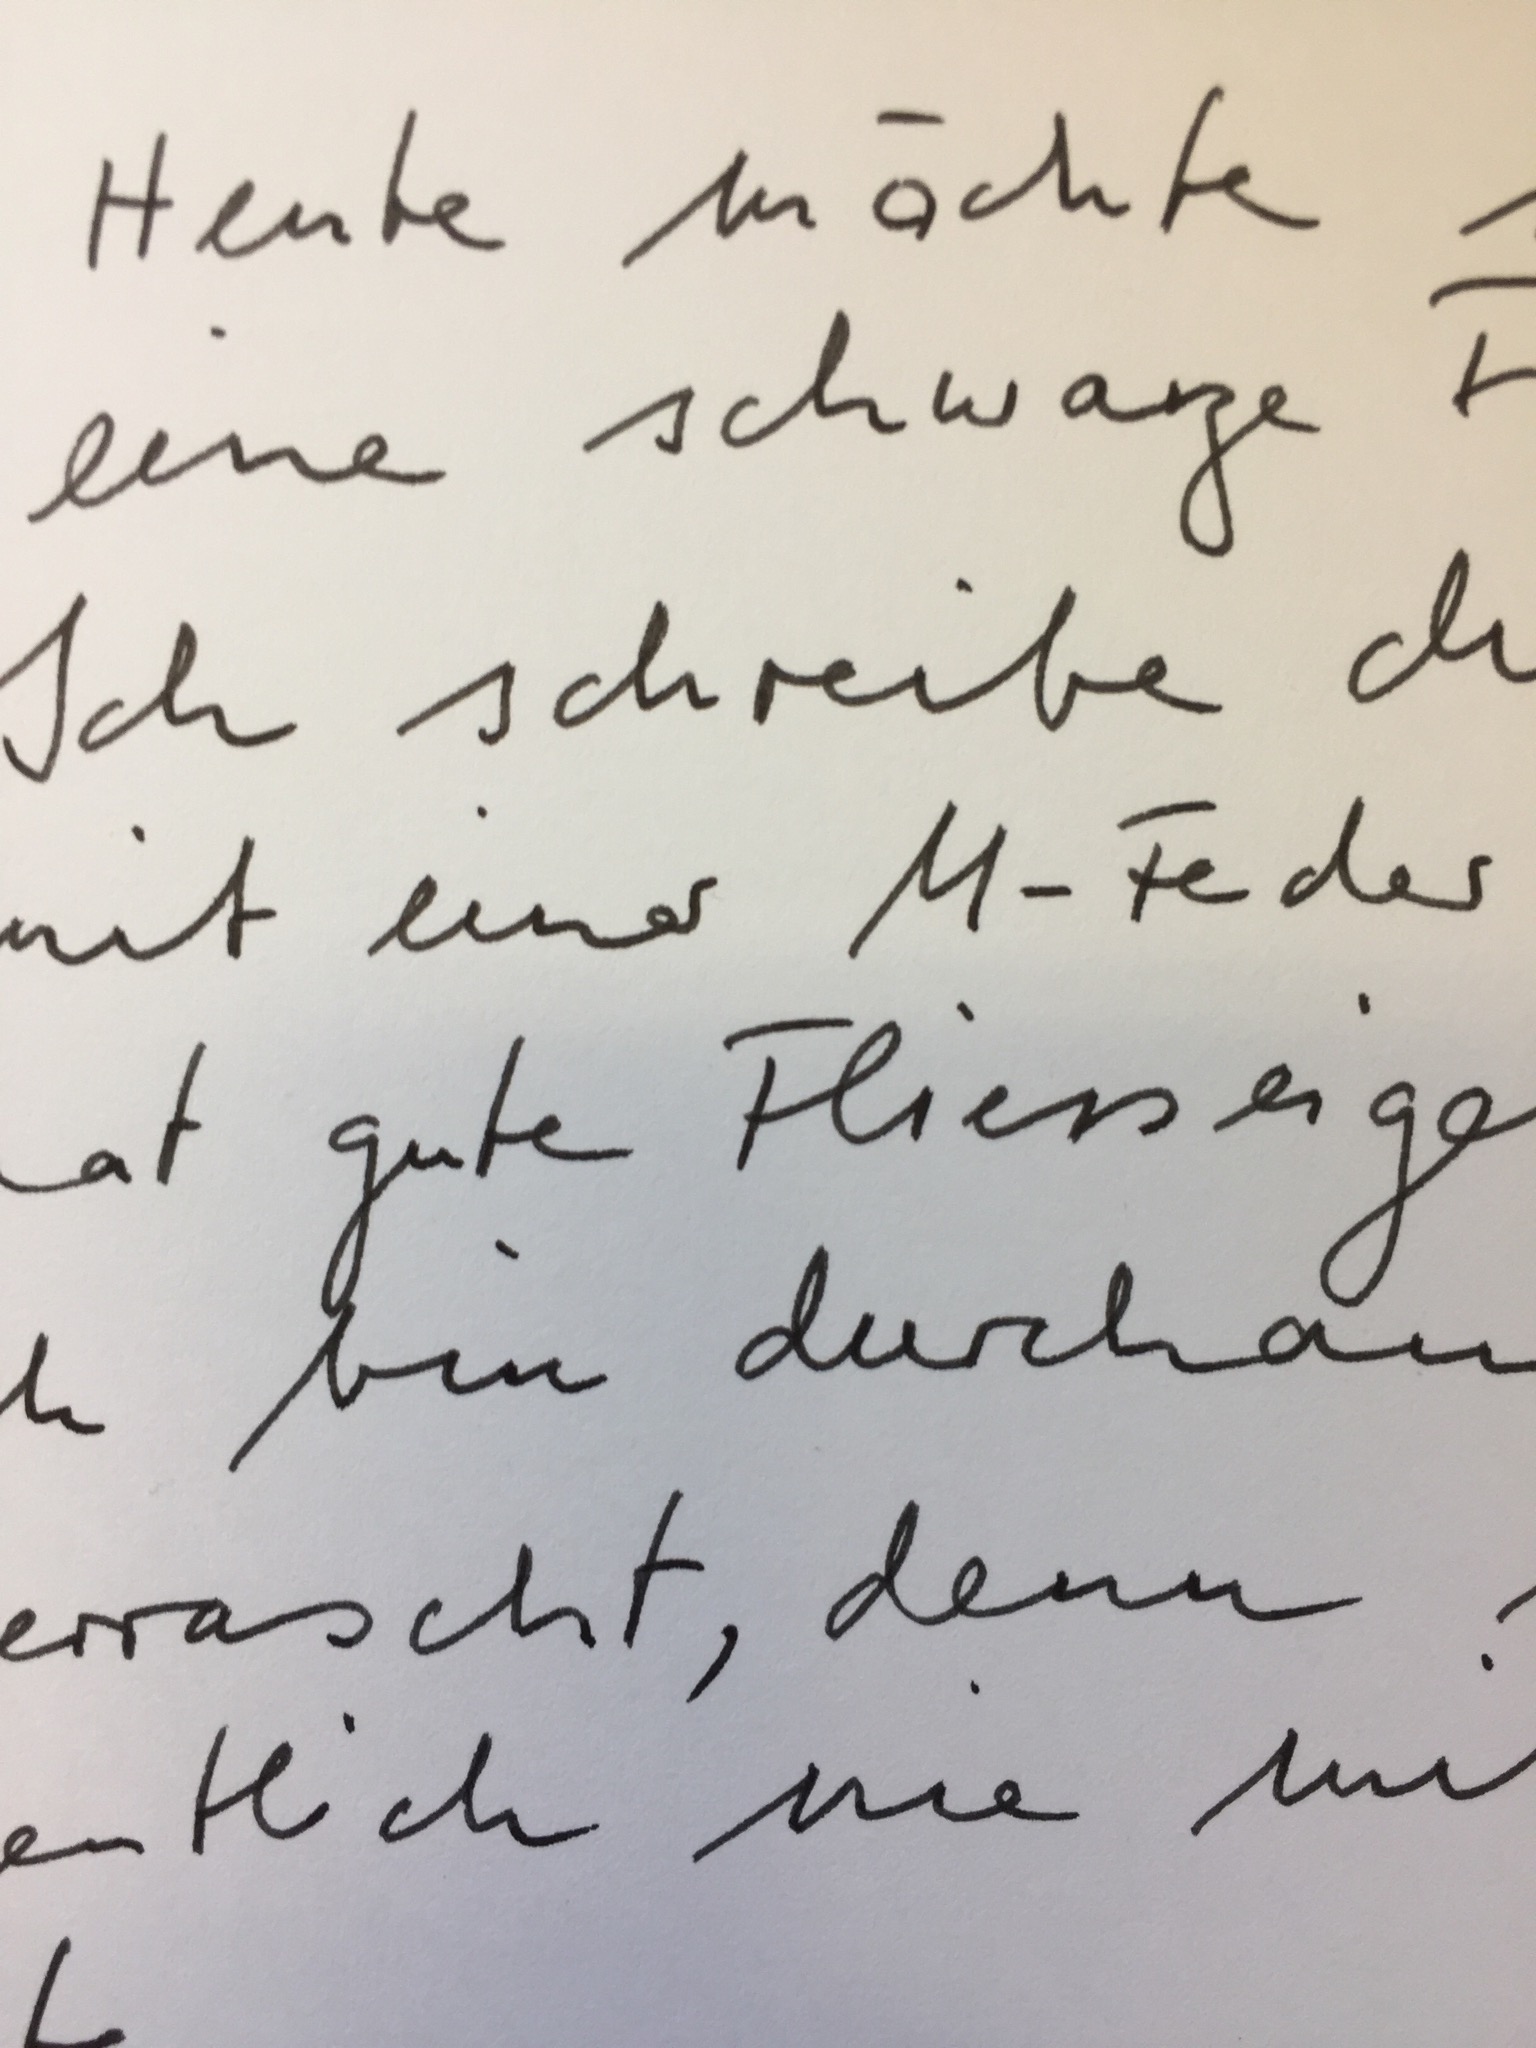 Heute möchte
eine schwarze
Ich schreibe
mit einer M-Feder
at gute Fliesseige
h bin durchau
errascht, denn
entlich nie mi
te